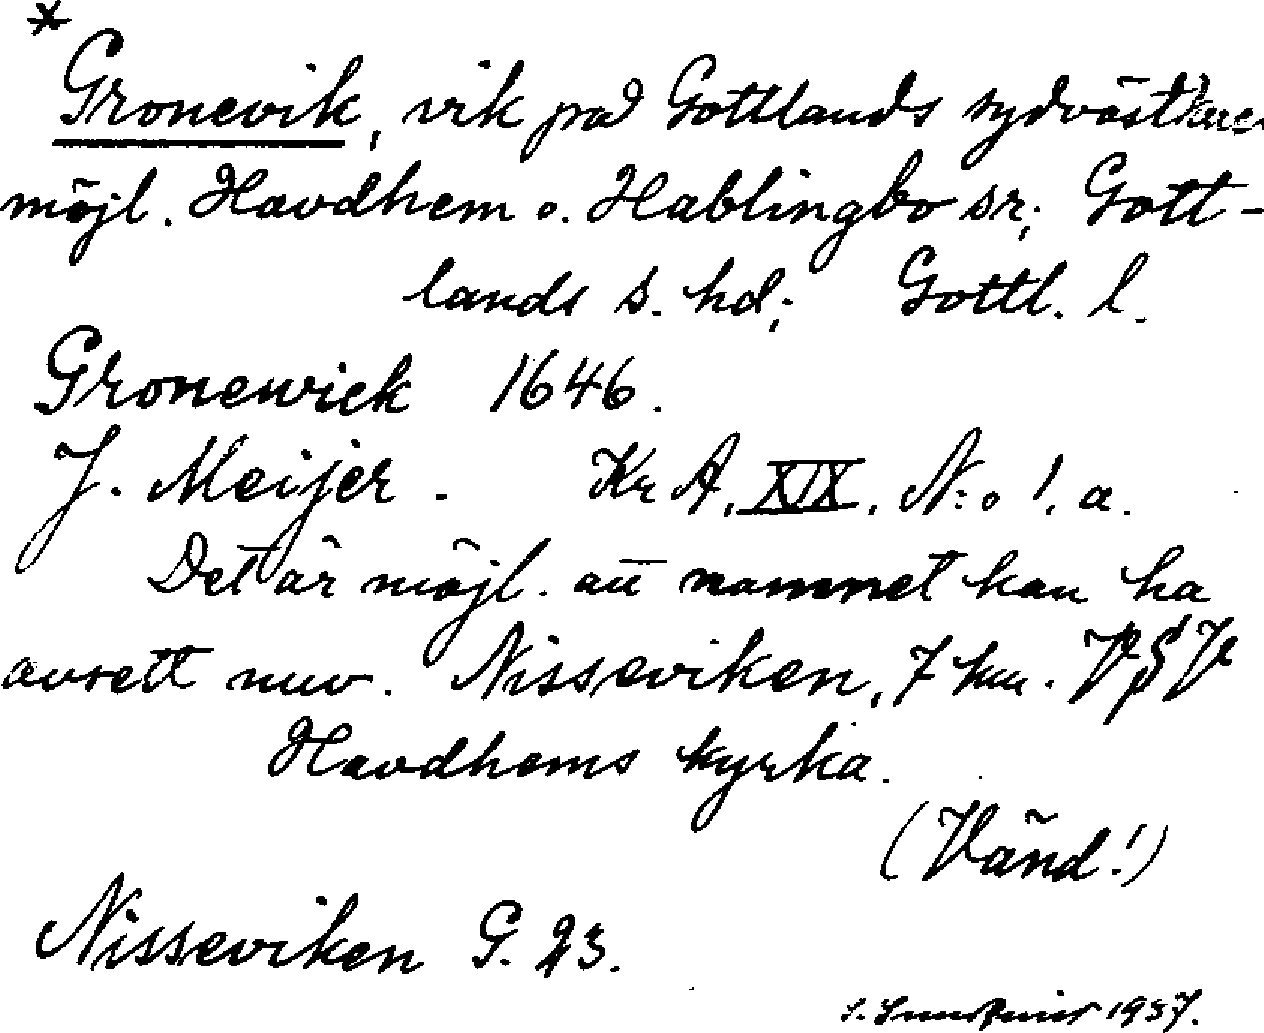 *
Gronevik, vik på Gottlands sydvästkust
möjl. Havdhem o. Hablingbo sr; Gott-
lands s. hd; Gottl. l.
Gronewick 1646.
J. Meijer. Kr A, XIX, N:o 1. a.
Det är möjl. att namnet kan ha
avsett nuv. Nisseviken, 7 km. VSV
Havdhems kyrka.
(Vänd!)
Nisseviken G. 23.
1937.